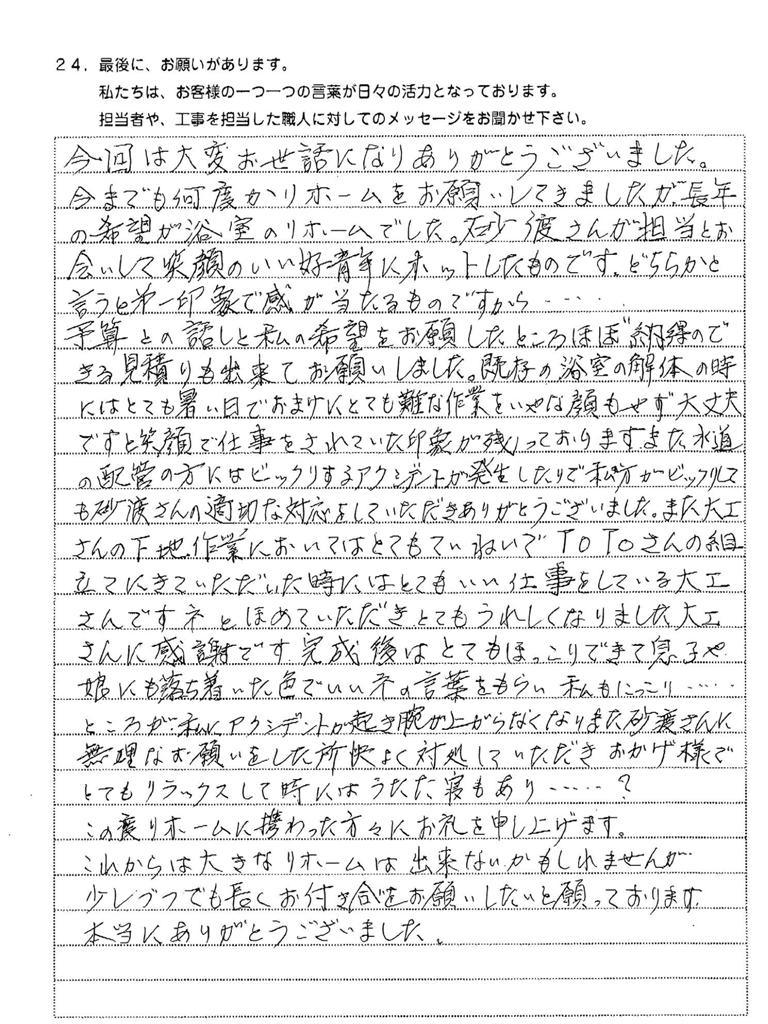 24. 最後に、お願いがあります。
私たちは、お客様の一つ一つの言葉が日々の活力となっております。
担当者や、工事を担当した職人に対してのメッセージをお聞かせ下さい。
今回は大変お世話になりありがとうございました。
今までも何度かリホームをお願いしてきましたが、長年
の希望が浴室のリホームでした。砂渡さんが担当とお
会いして笑顔のいい好青年にホットしたものです。どちらかと
言うと第一印象で感が当たるものですから……
予算との話しと私の希望をお願したところほぼ納得ので
きる見積りも出来てお願いしました。既存の浴室の解体の時
にはとても暑い日でおまけにとても難な作業をいやな顔もせず大丈夫
ですと笑顔で仕事をされていた印象が残っております。また水道
の配管の方にはビックリするアクシデントが発生したりで私方がビックリして
も砂渡さんの適切な対応をしていただきありがとうございました。また大工
さんの下地作業においてはとてもていねいでTOTOさんの組
立てにきていただいた時にはとてもいい仕事をしている大工
さんですネとほめていただきとてもうれしくなりました大工
さんに感謝です完成後はとてもほっこりできて息子や
娘にも落ち着いた色でいいネの言葉をもらい私もにっこり……
ところが私にアクシデントが起き腕が上がらなくなりまた砂渡さんに
無理なお願いをした所快よく対処していただきおかげ様で
とてもリラックスして時にはうたた寝もあり……?
この度リホームに携わった方々にお礼を申し上げます。
これからは大きなリホームは出来ないかもしれませんが
少しづつでも長くお付き合をお願いしたいと願っております
本当にありがとうございました。